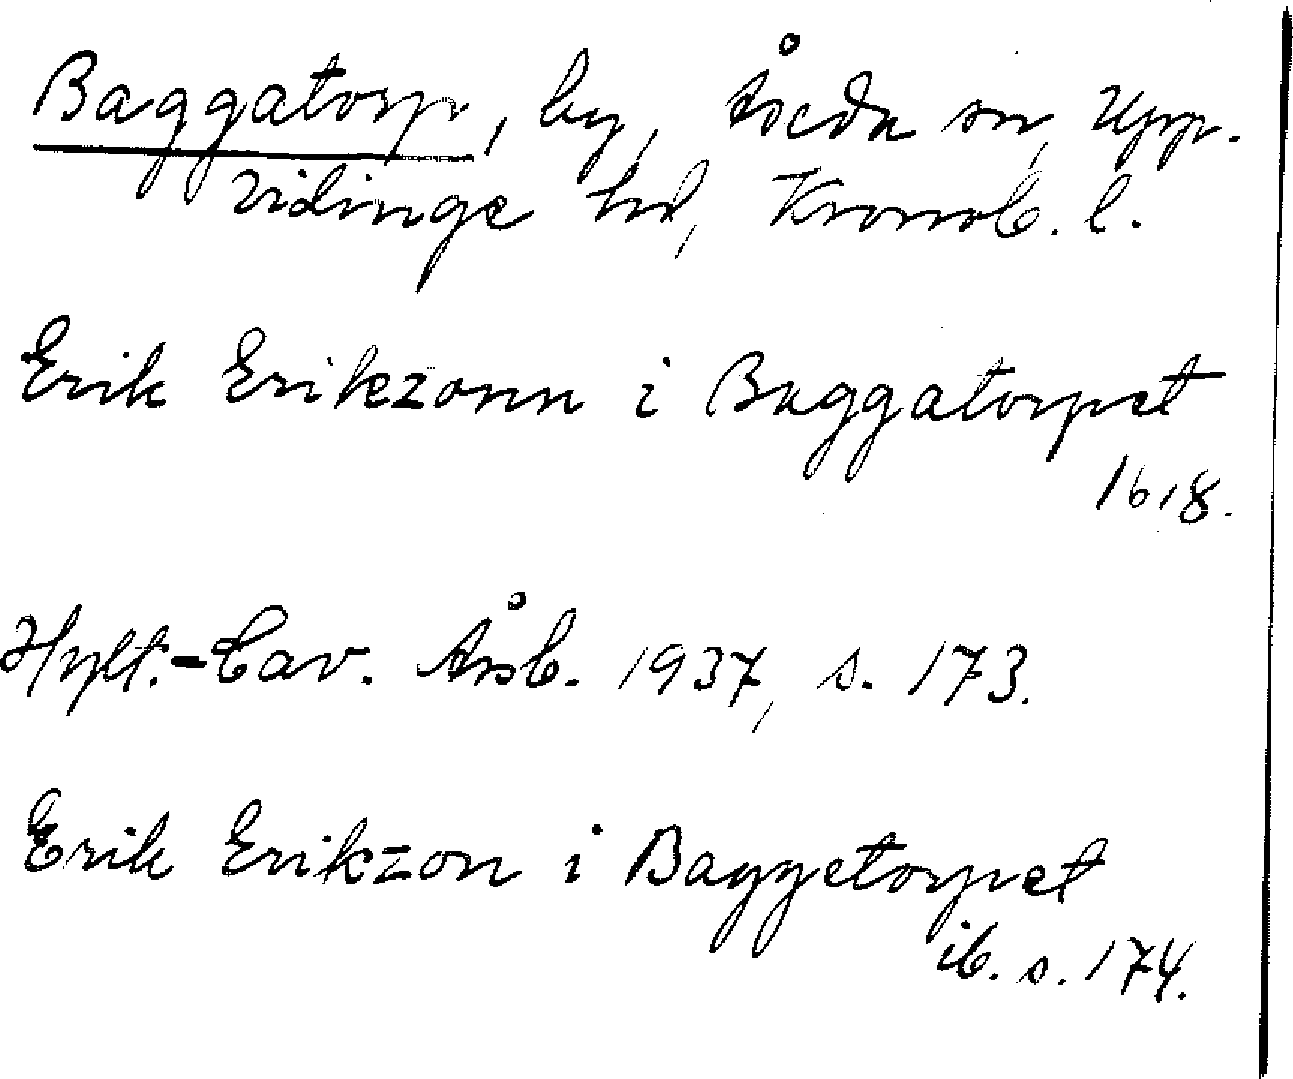 Baggatorp, by, Åseda sn, Upp-
vidinge hd, Kronob. l.
Erik Erikzonn i Baggatorpet
1618.
Hylt.-Cav. Årsb. 1937, s. 173.
Erik Erikzon i Baggetorpet
ib. s. 174.